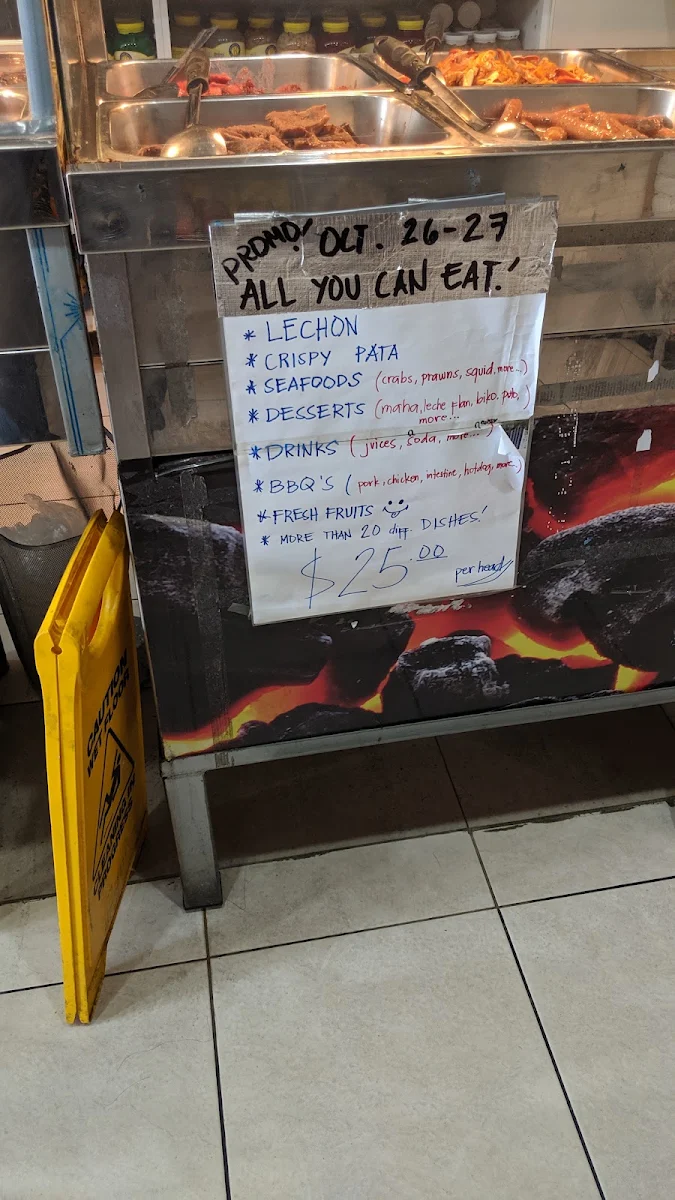 PROMO! OCT. 26-27
ALL YOU CAN EAT.!
* LECHON
* CRISPY PATA
* SEAFOODS (crabs, prawns, squid, more...)
* DESSERTS (maha, leche flan, biko, puto,)
more...
* DRINKS (juices, soda, more...)
* BBQ'S (pork, chicken, intestine, hotdog, more..)
* FRESH FRUITS
* MORE THAN 20 diff. DISHES!
$25.00
per head
CAUTION
WET FLOOR
CLEANING IN
PROGRESS